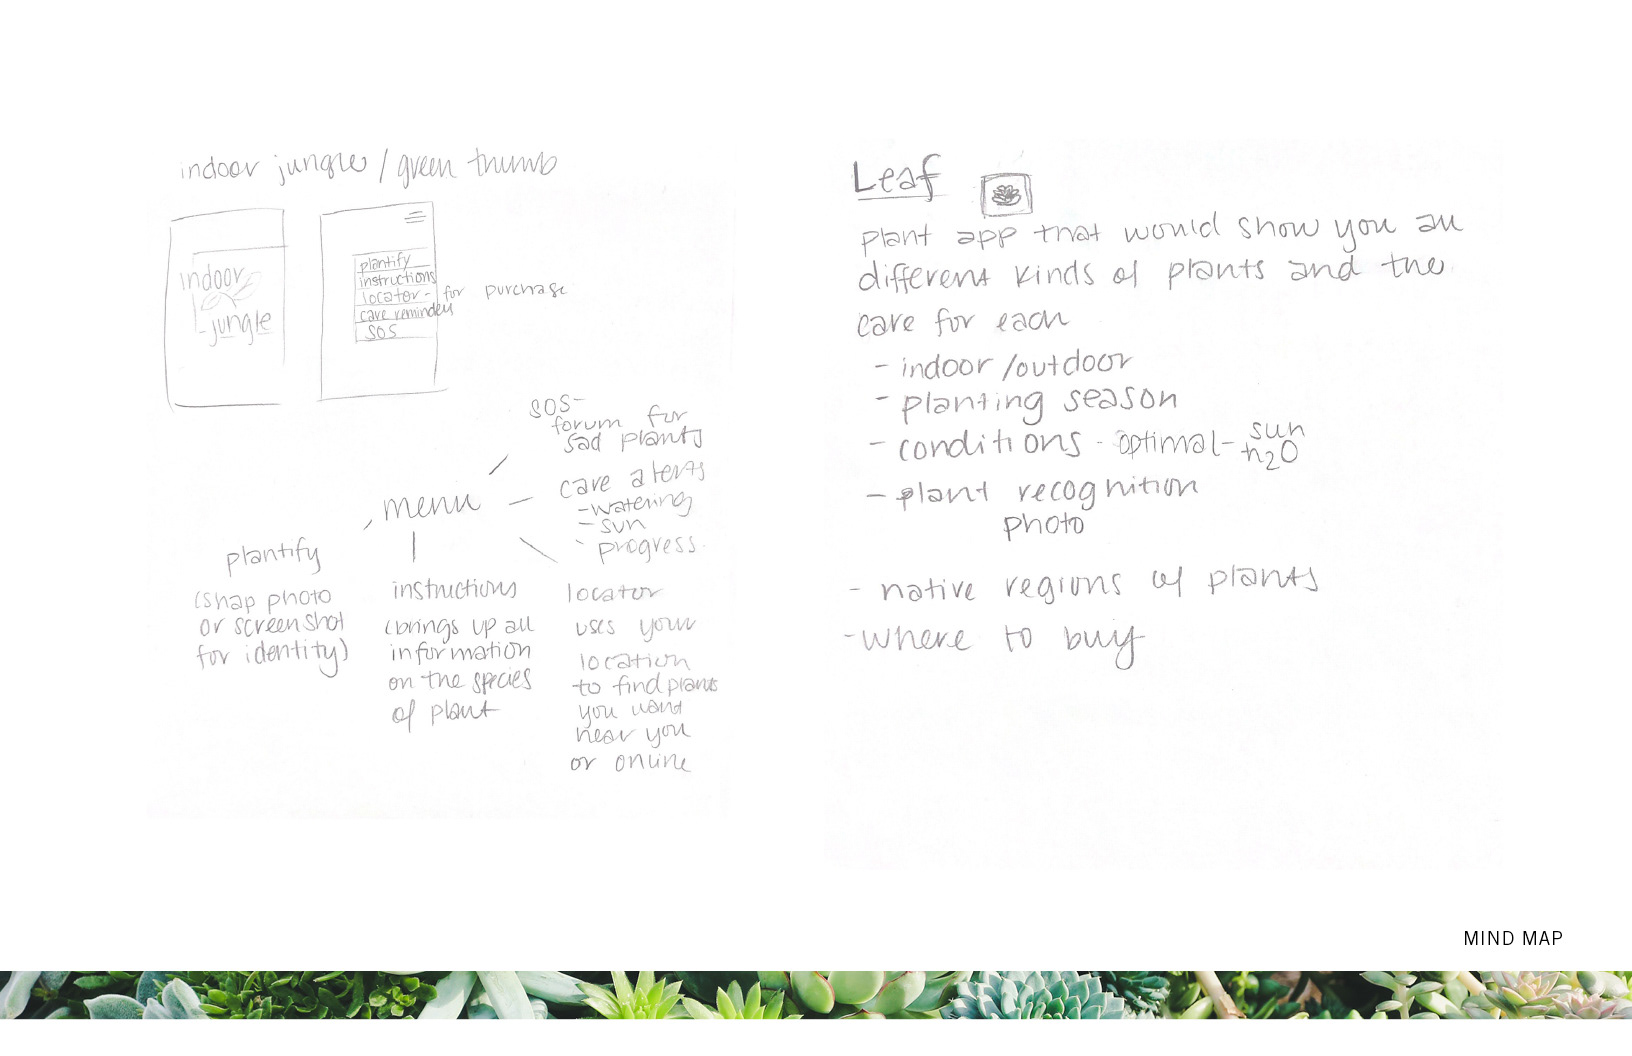 indoor jungle / green thumb
indoor
jungle
plantify
instructions
locator - for purchase
care reminders
SOS
SOS-
forum for
sad plants
menu
care alerts
- watering
- sun
- progress
plantify
(snap photo
or screenshot
for identity)
instructions
(brings up all
information
on the species
of plant
locator
uses your
location
to find plants
you want
near you
or online
Leaf
plant app that would show you all
different kinds of plants and the
care for each
- indoor/outdoor
- planting season
- conditions - optimal - sun
h2O
- plant recognition
photo
- native regions of plants
- where to buy
MIND MAP